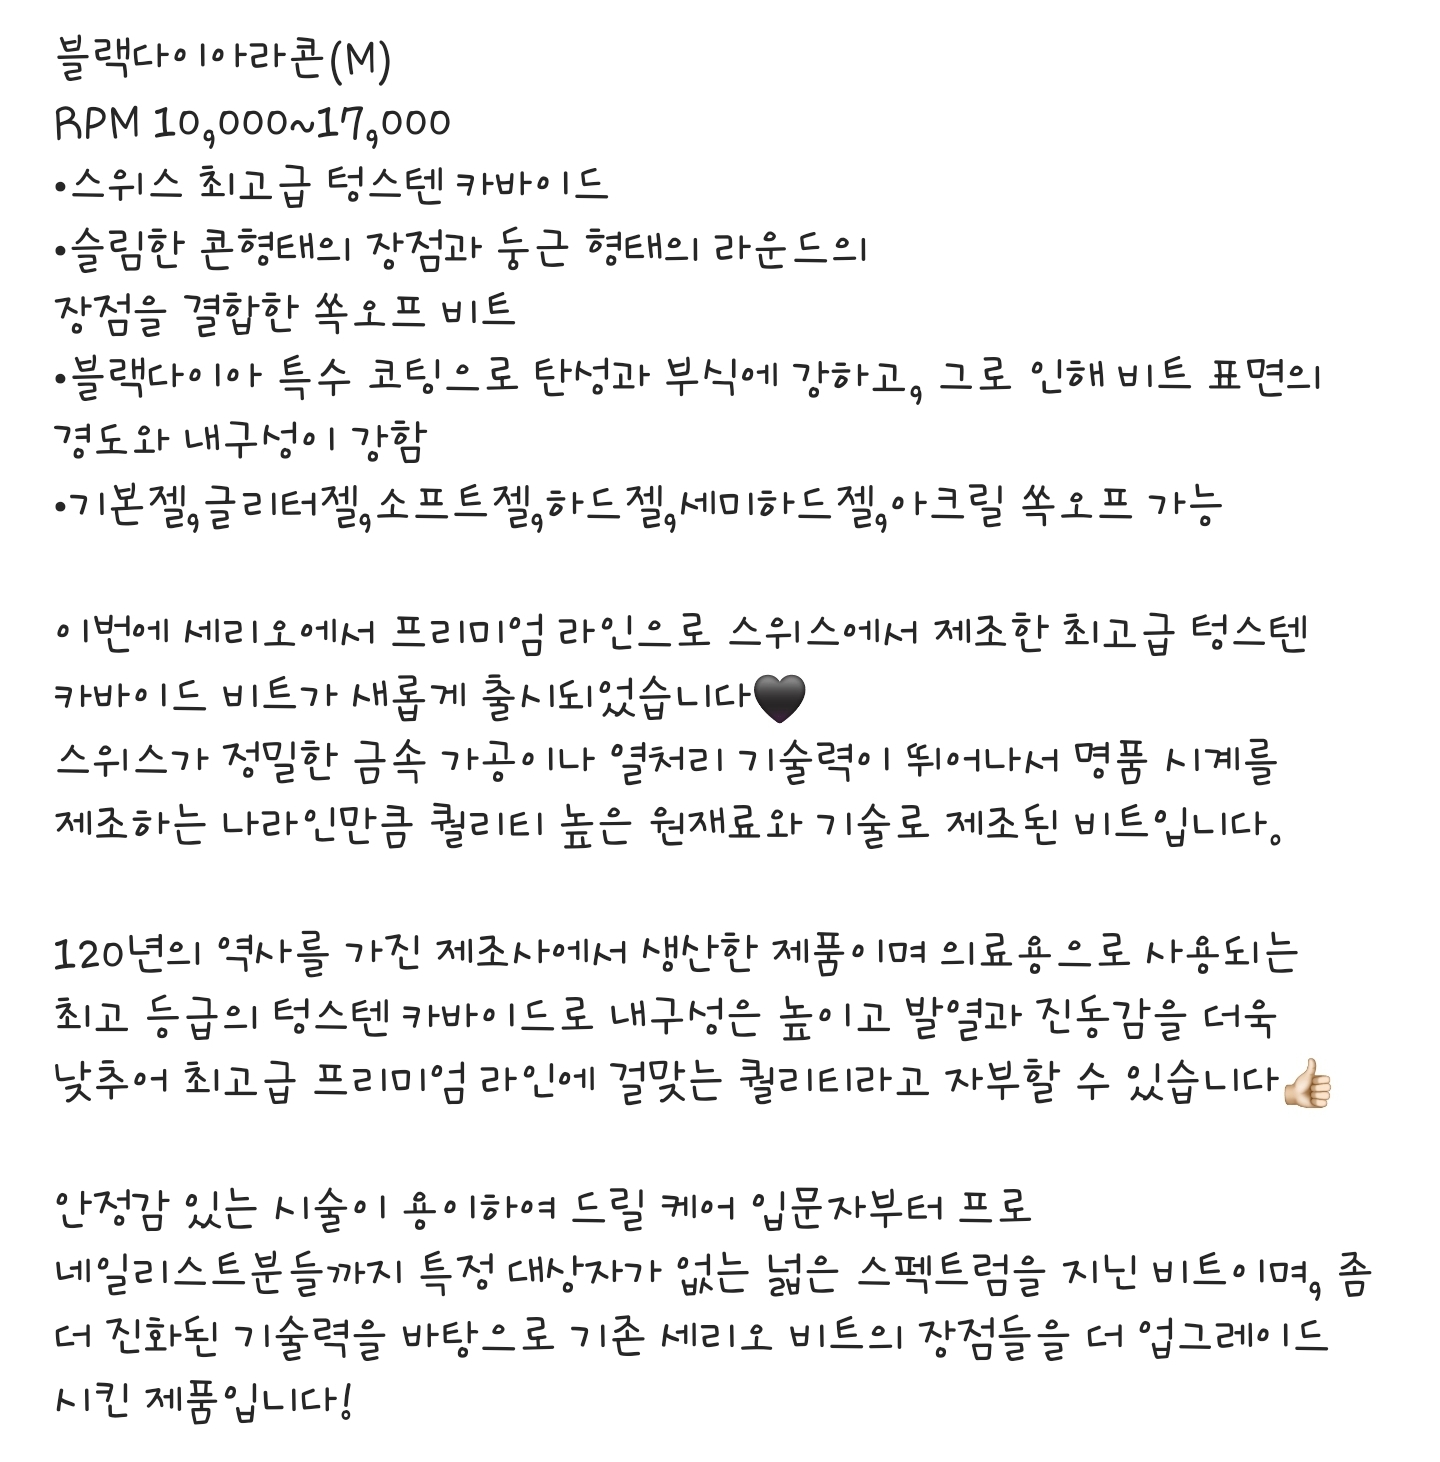 블랙다이아라콘(M)
RPM 10,000~17,000
•스위스 최고급 텅스텐 카바이드
•슬림한 콘형태의 장점과 둥근 형태의 라운드의
장점을 결합한 쏙오프 비트
•블랙다이아 특수 코팅으로 탄성과 부식에 강하고, 그로 인해 비트 표면의
경도와 내구성이 강함
•기본젤,글리터젤,소프트젤,하드젤,세미하드젤,아크릴 쏙오프 가능
이번에 세리오에서 프리미엄 라인으로 스위스에서 제조한 최고급 텅스텐
카바이드 비트가 새롭게 출시되었습니다🖤
스위스가 정밀한 금속 가공이나 열처리 기술력이 뛰어나서 명품 시계를
제조하는 나라인만큼 퀄리티 높은 원재료와 기술로 제조된 비트입니다.
120년의 역사를 가진 제조사에서 생산한 제품이며 의료용으로 사용되는
최고 등급의 텅스텐 카바이드로 내구성은 높이고 발열과 진동감을 더욱
낮추어 최고급 프리미엄 라인에 걸맞는 퀄리티라고 자부할 수 있습니다👍🏻
안정감 있는 시술이 용이하여 드릴 케어 입문자부터 프로
네일리스트분들까지 특정 대상자가 없는 넓은 스펙트럼을 지닌 비트이며, 좀
더 진화된 기술력을 바탕으로 기존 세리오 비트의 장점들을 더 업그레이드
시킨 제품입니다!